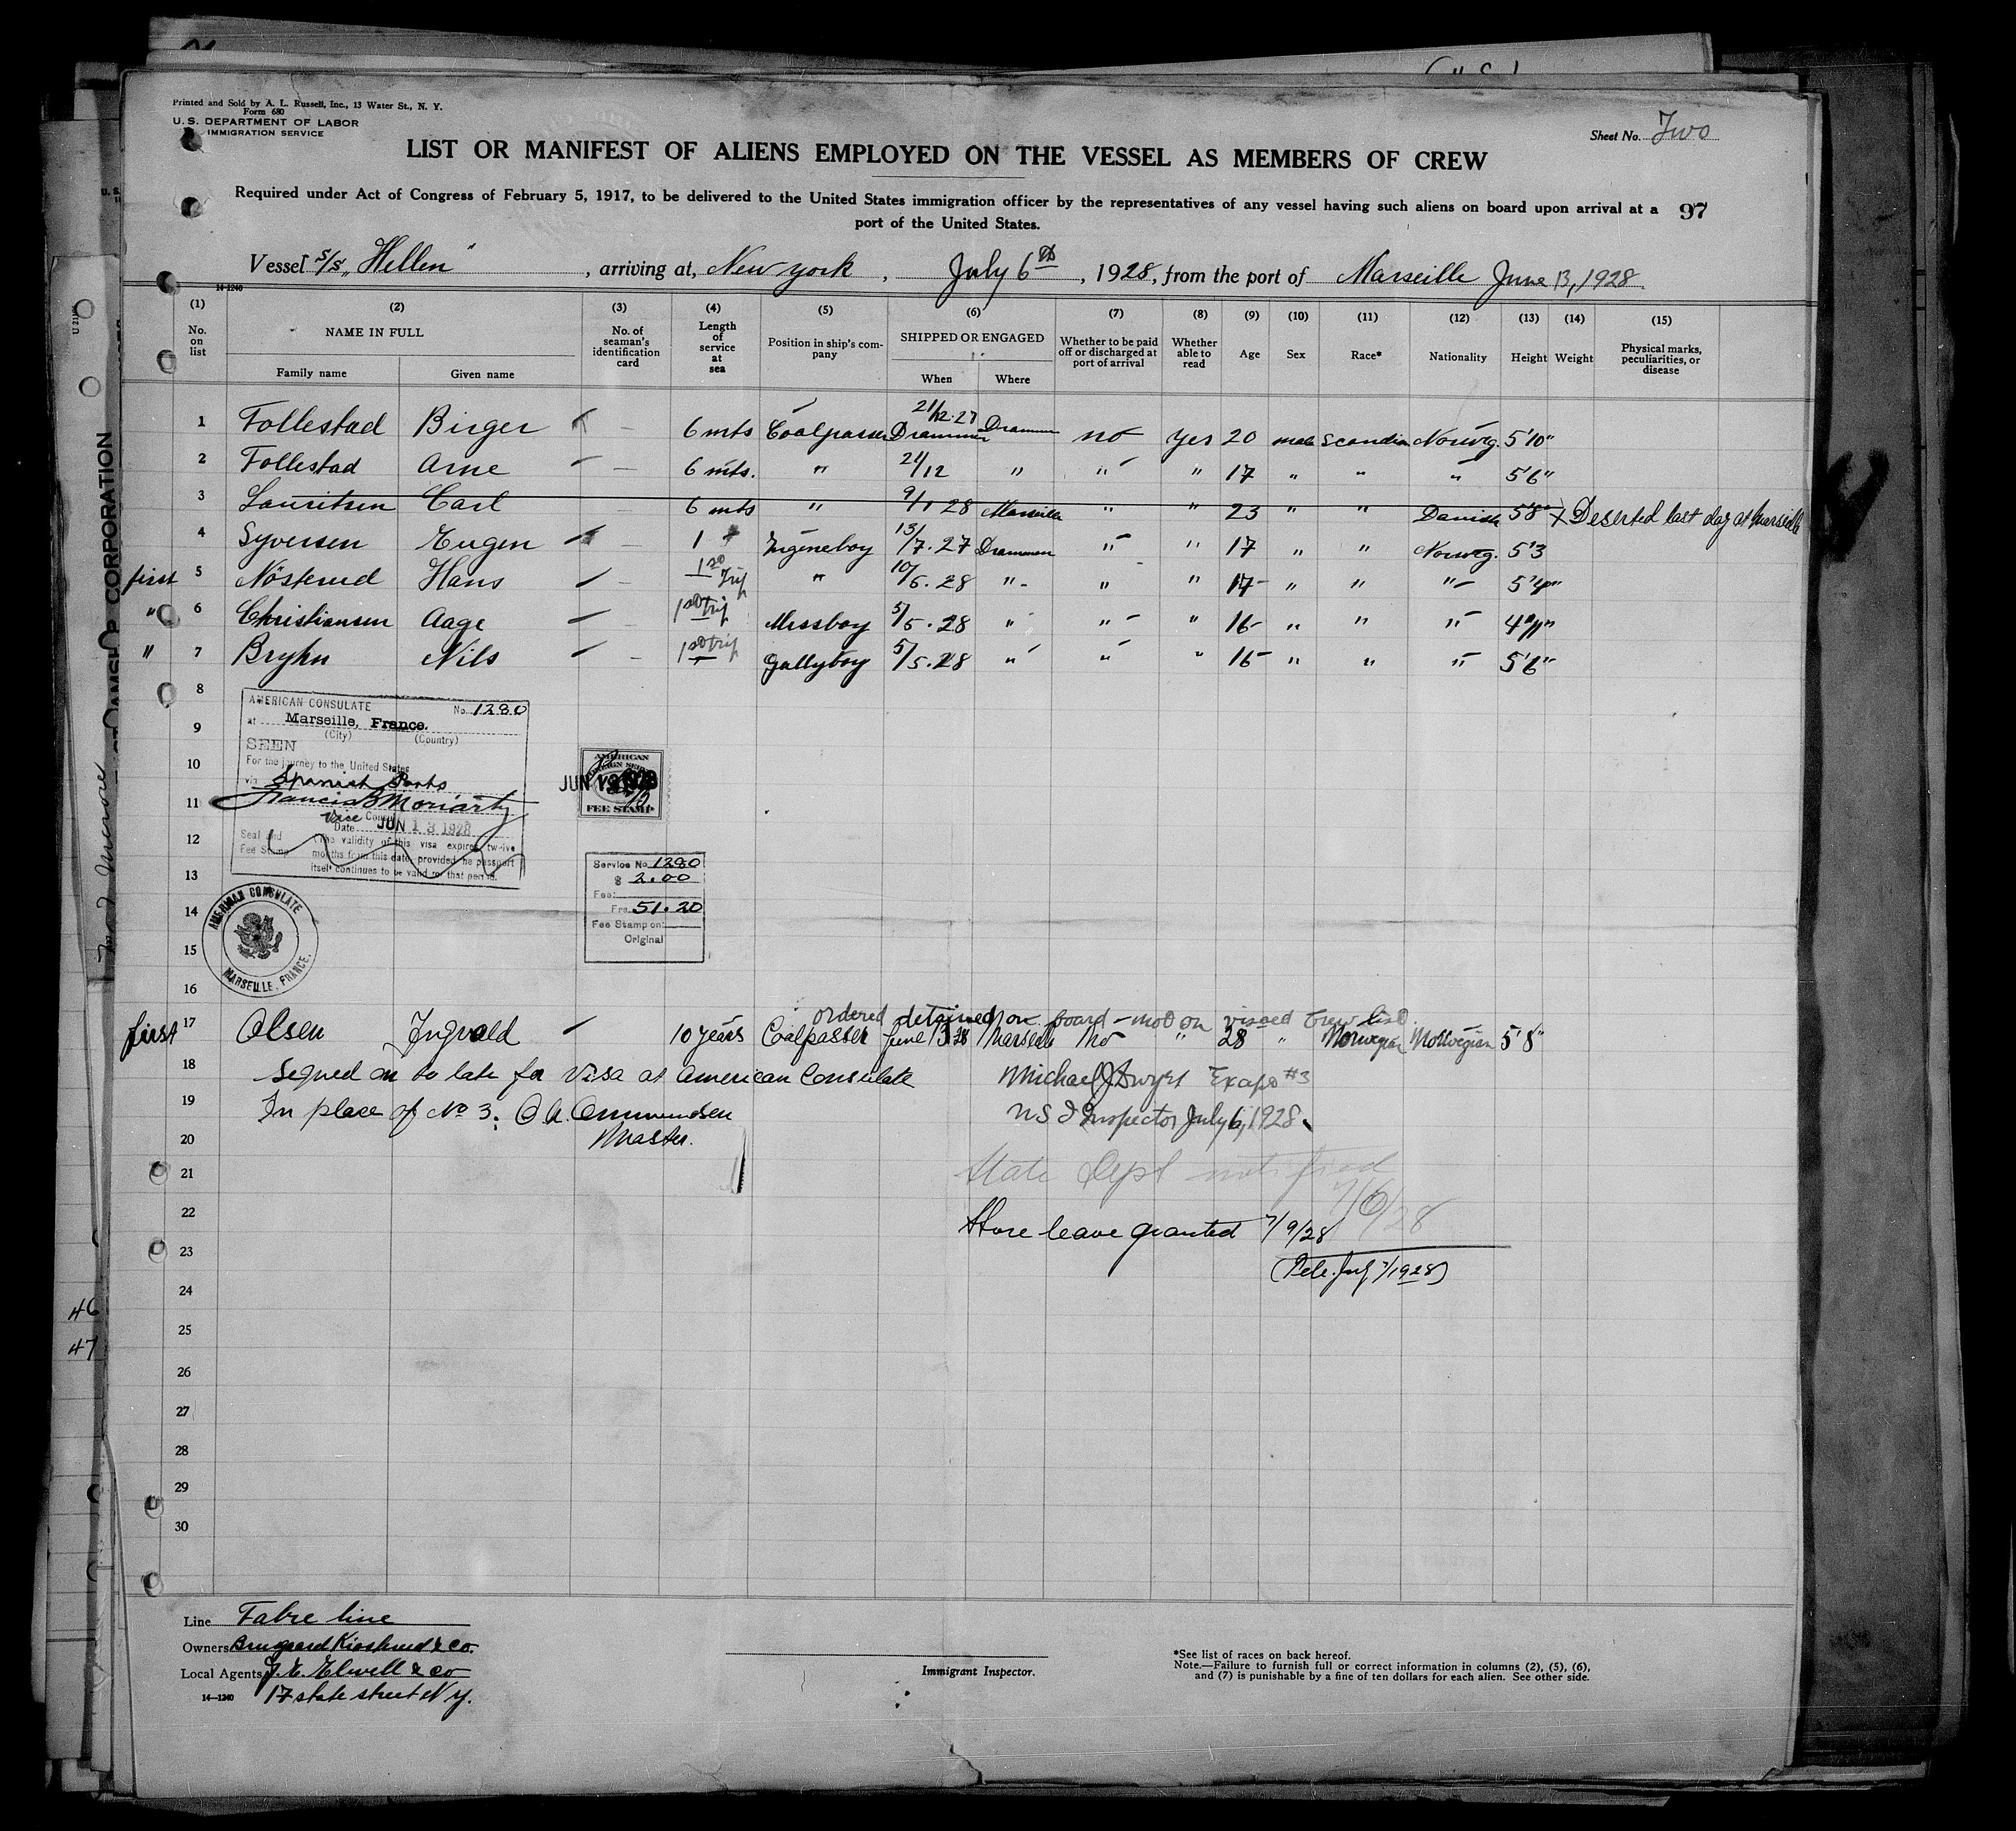 Printed and Sold by A. L. Russell, Inc., 13 Water St., N. Y.
Form 680
U. S. DEPARTMENT OF LABOR
IMMIGRATION SERVICE
Sheet No. Two
LIST OR MANIFEST OF ALIENS EMPLOYED ON THE VESSEL AS MEMBERS OF CREW
Required under Act of Congress of February 5, 1917, to be delivered to the United States immigration officer by the representatives of any vessel having such aliens on board upon arrival at a
port of the United States.
97
Vessel S/S "Hellen", arriving at, New York, July 6th, 1928, from the port of Marseille June 13, 1928
14-1240
(1) (2) (3) (4) (5) (6) (7) (8) (9) (10) (11) (12) (13) (14) (15)
No. on list NAME IN FULL No. of seaman's identification card Length of service at sea Position in ship's company SHIPPED OR ENGAGED Whether to be paid off or discharged at port of arrival Whether able to read Age Sex Race* Nationality Height Weight Physical marks, peculiarities, or disease
Family name Given name When Where
1 Follestad Birger 6 mts Coalpasser 21/12.27 Drammen Drammen no yes 20 male Scandin Norwg. 5'10"
2 Follestad Arne 6 mts. " 21/12 " " " 17 " " " 5'6"
3 Lauritsen Carl 6 mts " 9/1 28 Marseille " " 23 " " Danish 5'8" x Deserted last day at Marseille
4 Syversen Eugen 1 Engineboy 13/7.27 Drammen " " 17 " " Norweg. 5'3
first 5 Nösterud Hans 1st Trip " 10/5.28 " " " 17 " " " 5'4"
" 6 Christiansen Aage 1st trip Messboy 5/5.28 " " " 16 " " " 4'11"
" 7 Bryhn Nils 1st trip Gallyboy 5/5.28 " " " 16 " " " 5'6"
8
AMERICAN CONSULATE No. 1280
at Marseille, France.
(City) (Country)
9
SEEN
For the journey to the United States
10
via Spanish Ports
Francis B Moriarty
11
Vice Consul
Date JUN 13 1928
12
Seal and Fee Stamp
(The validity of this visa expires twelve
months from this date, provided the passport
itself continues to be valid for that period.
AMERICAN FOREIGN SERVICE
JUN 13 1928
FEE STAMP
13
Service No. 1280
$ 2.00
Fee:
Frs. 51.20
Fee Stamp on:
Original
14
AMERICAN CONSULATE
MARSEILLE, FRANCE.
15
16
ordered detained on board - not on visaed Crew list.
first 17 Olsen Ingvald 10 years Coalpasser June 13 28 Marseille No " 28 " Norwegian Norwegian 5'8"
18 Signed on to late for Visa at American Consulate Michael J Dwyer
19 In place of No 3. Ommundsen Inspector July 6, 1928
20 Master.
21 State Dept notified
7/6/28
22 Shore leave granted 7/9/28
23
24
25
26
27
28
29
30
46
47
STEAMSHIP CORPORATION
Line Fabre line
Owners Bruusgaard Kiosterud & Co.
Local Agents J. E. Elwell & Co
14—1240 17 State street N.Y.
Immigrant Inspector.
*See list of races on back hereof.
Note.—Failure to furnish full or correct information in columns (2), (5), (6),
and (7) is punishable by a fine of ten dollars for each alien. See other side.